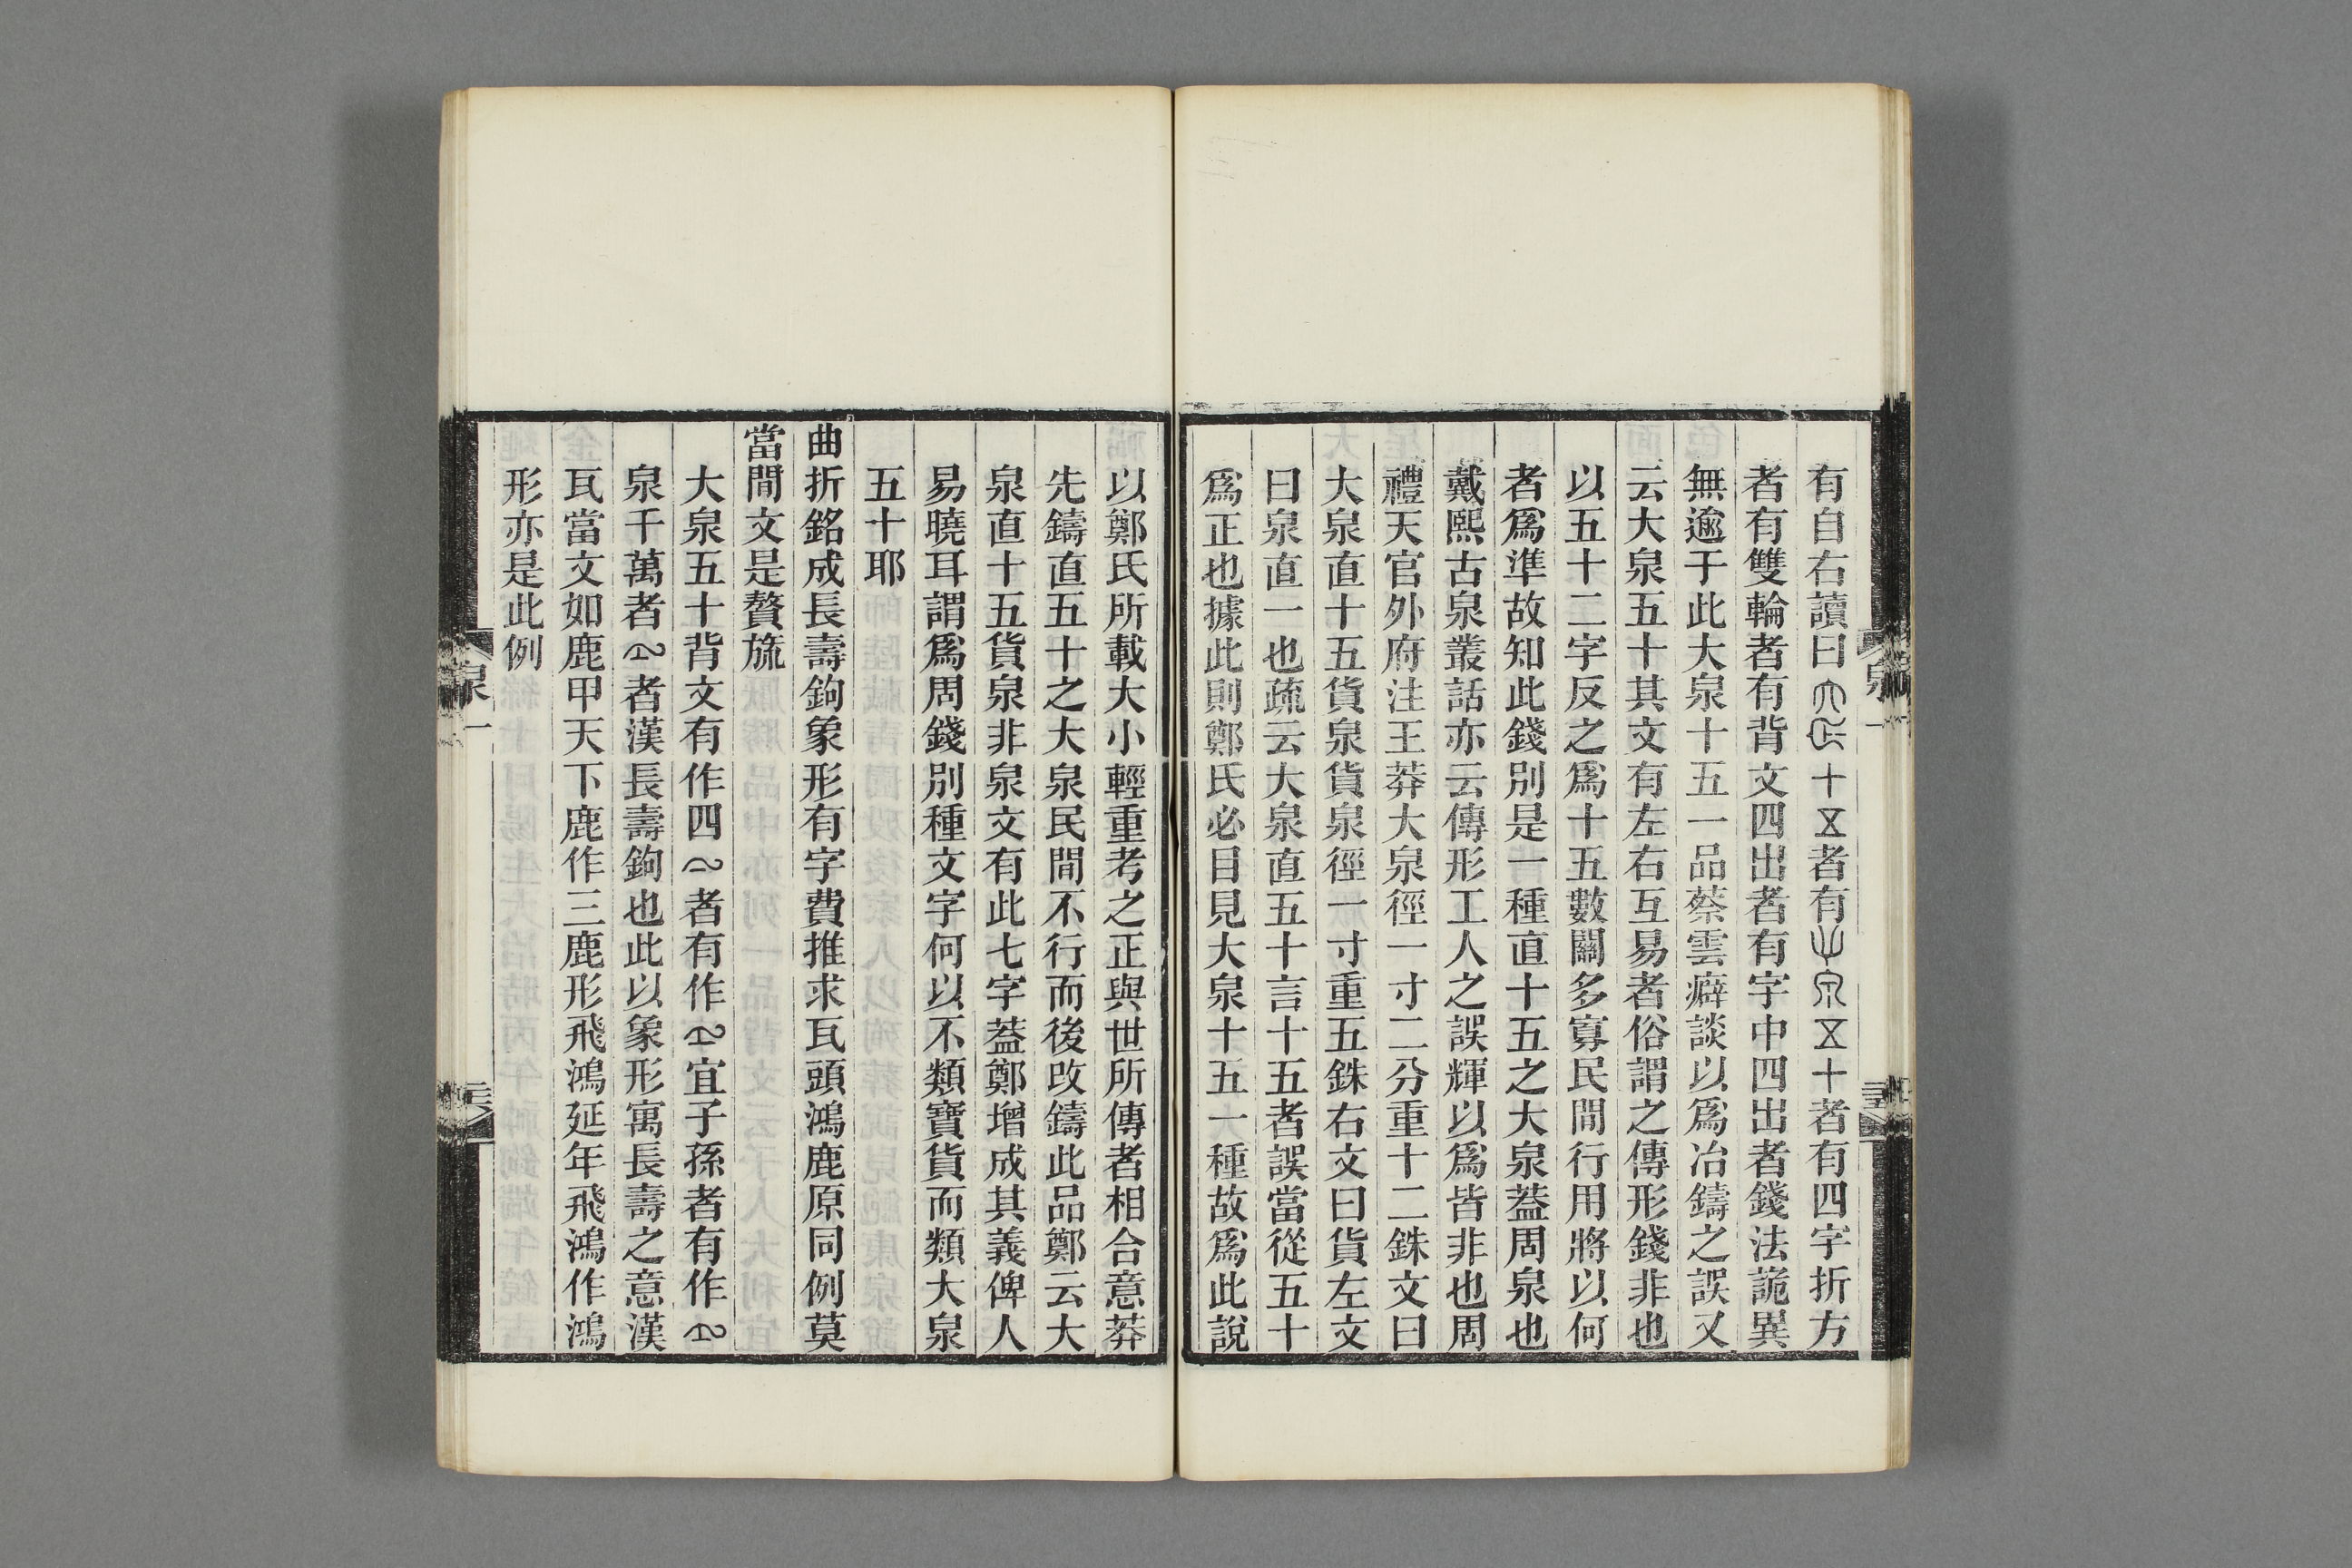 有自右讀曰大泉十五者有小泉五十者有四字折方
者有雙輪者有背文四出者有字中四出者錢法詭異
無逾于此大泉十五一品蔡雲癖談以爲冶鑄之誤又
云大泉五十其文有左右互易者俗謂之傳形錢非也
以五十二字反之爲十五數關多寡民間行用將以何
者爲準故知此錢別是一種直十五之大泉葢周泉也
戴熙古泉叢話亦云傳形工人之誤輝以爲皆非也周
禮天官外府注王莽大泉徑一寸二分重十二銖文曰
大泉直十五貨泉貨泉徑一寸重五銖右文曰貨左文
曰泉直一也疏云大泉直五十言十五者誤當從五十
爲正也據此則鄭氏必目見大泉十五一種故爲此說
以鄭氏所載大小輕重考之正與世所傳者相合意莽
先鑄直五十之大泉民間不行而後改鑄此品鄭云大
泉直十五貨泉非泉文有此七字葢鄭增成其義俾人
易曉耳謂爲周錢別種文字何以不類寶貨而類大泉
五十耶
曲折銘成長壽鉤象形有字費推求瓦頭鴻鹿原同例莫
當閒文是贅旒
大泉五十背文有作四者有作宜子孫者有作
泉千萬者者漢長壽鉤也此以象形寓長壽之意漢
瓦當文如鹿甲天下鹿作三鹿形飛鴻延年飛鴻作鴻
形亦是此例
泉一